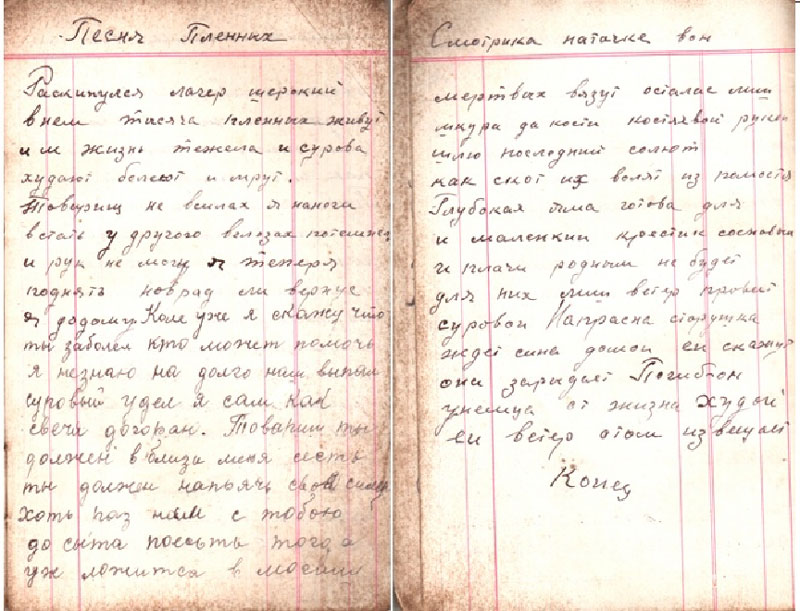 Песня Пленних
Раскинулся лагер шерокий
внем тисяча пленних живут
и м жизнь тежела и сурова
худают болеют и мрут.
Товарищ не всилах я наноги
встать у другого вглазах потемнел
и рук не могу я теперя
поднять новрад ли вернус
я додому Коля уже я скажу что
ты заболел кто может помочь
я незнаю на долго нам выпал
суровый удел я сам как
свеча догораю. Товарищ ты
должен вблизи меня сесть
ты должен напрячь свои силы
хоть раз нам с тобою
до сыта поесьть тогда
уж ложится в могилу
Смотрика натачке вон
мертвах вязут осталас лиш
шкура да кости костявой рукой
шлю последний солют
как скот их волят из помоста
Глубокая яма готова для
и маленкии крестик сосновый
и плачи родным не будет
для них лиш ветер провит
суровой Напрасна старушка
ждет сина домой ей скажут
она зарыдает Погиб он
унемца от жизни худой
ей ветер отом извещает
Конец